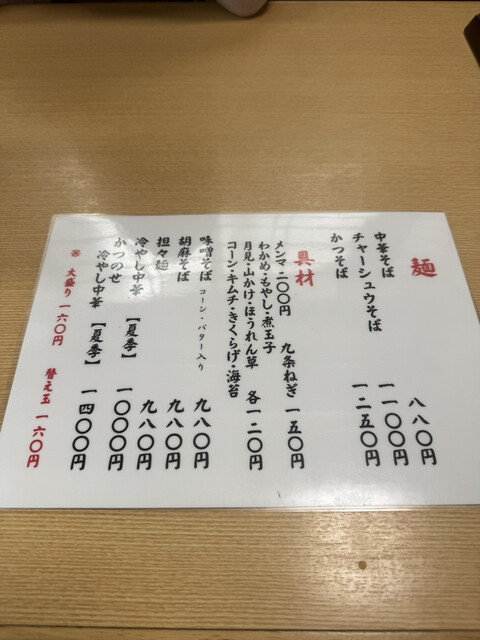 麺
中華そば 八八〇円
チャーシュウそば 一一〇〇円
かつそば 一二五〇円
具材
メンマ 二〇〇円 九条ねぎ 一五〇円
わかめ・もやし・煮玉子
月見・山かけ・ほうれん草 各一二〇円
コーン・キムチ・きくらげ・海苔
味噌そば コーン・バター入り 九八〇円
胡麻そば 九八〇円
担々麺 九八〇円
冷やし中華 【夏季】 一〇〇〇円
かつのせ
冷やし中華 【夏季】 一四〇〇円
※ 大盛り 一六〇円 替え玉 一六〇円